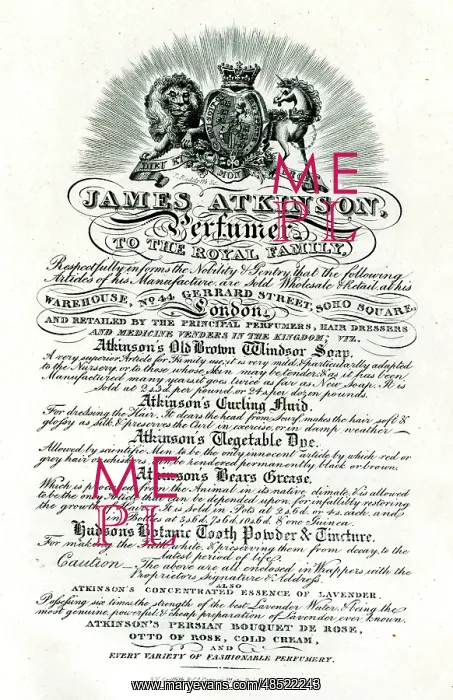 DIEU ET MON
JAMES ATKINSON,
Perfumer
TO THE ROYAL FAMILY,
Respectfully informs the Nobility & Gentry that the following
Articles of his Manufacture are Sold Wholesale & Retail at his
WAREHOUSE, No 44 GERRARD STREET, SOHO SQUARE,
London,
AND RETAILED BY THE PRINCIPAL PERFUMERS, HAIR DRESSERS
AND MEDICINE VENDERS IN THE KINGDOM; VIZ.
Atkinson's Old Brown Windsor Soap.
A very superior Article for Family use; it is very mild & particularly adapted
to the Nursery, or to those whose Skin may be tender & as it has been
Manufactured many years it goes twice as far as New Soap. It is
Sold at 2s per pound, or 24s per dozen pounds.
Atkinson's Curling Fluid
For dressing the Hair. It clears the head from Scurf, makes the hair soft &
glossy as silk, & preserves the Curl in exercise, or in damp weather
Atkinson's Vegetable Dye.
Allowed by scientific Men to be the only innocent article by which red or
grey hair or whiskers can be rendered permanently black or brown.
Atkinsons Bears Grease.
Which is procured from the Animal in its native climate & is allowed
to be the only Article that can be depended upon for infallibly restoring
the growth Hair. It is Sold in Pots at 2s6d. or 4s. each, and
in Bottles at 3s6d. 7s6d. 10s6d. & one Guinea
Hudsons Botanic Tooth Powder & Tincture.
For making the Teeth white & preserving them from decay to the
latest period of life.
Caution. The above are all enclosed in Wrappers with the
Proprietors Signature & Address.
ALSO
ATKINSON'S CONCENTRATED ESSENCE OF LAVENDER.
Possessing six times the strength of the best Lavender Water & being the
most genuine, powerful & cheap preparation of Lavender ever known.
ATKINSON'S PERSIAN BOUQUET DE ROSE,
OTTO OF ROSE, COLD CREAM,
AND
EVERY VARIETY OF FASHIONABLE PERFUMERY.
ME
PL
ME
PL
www.maryevans.com/48522243